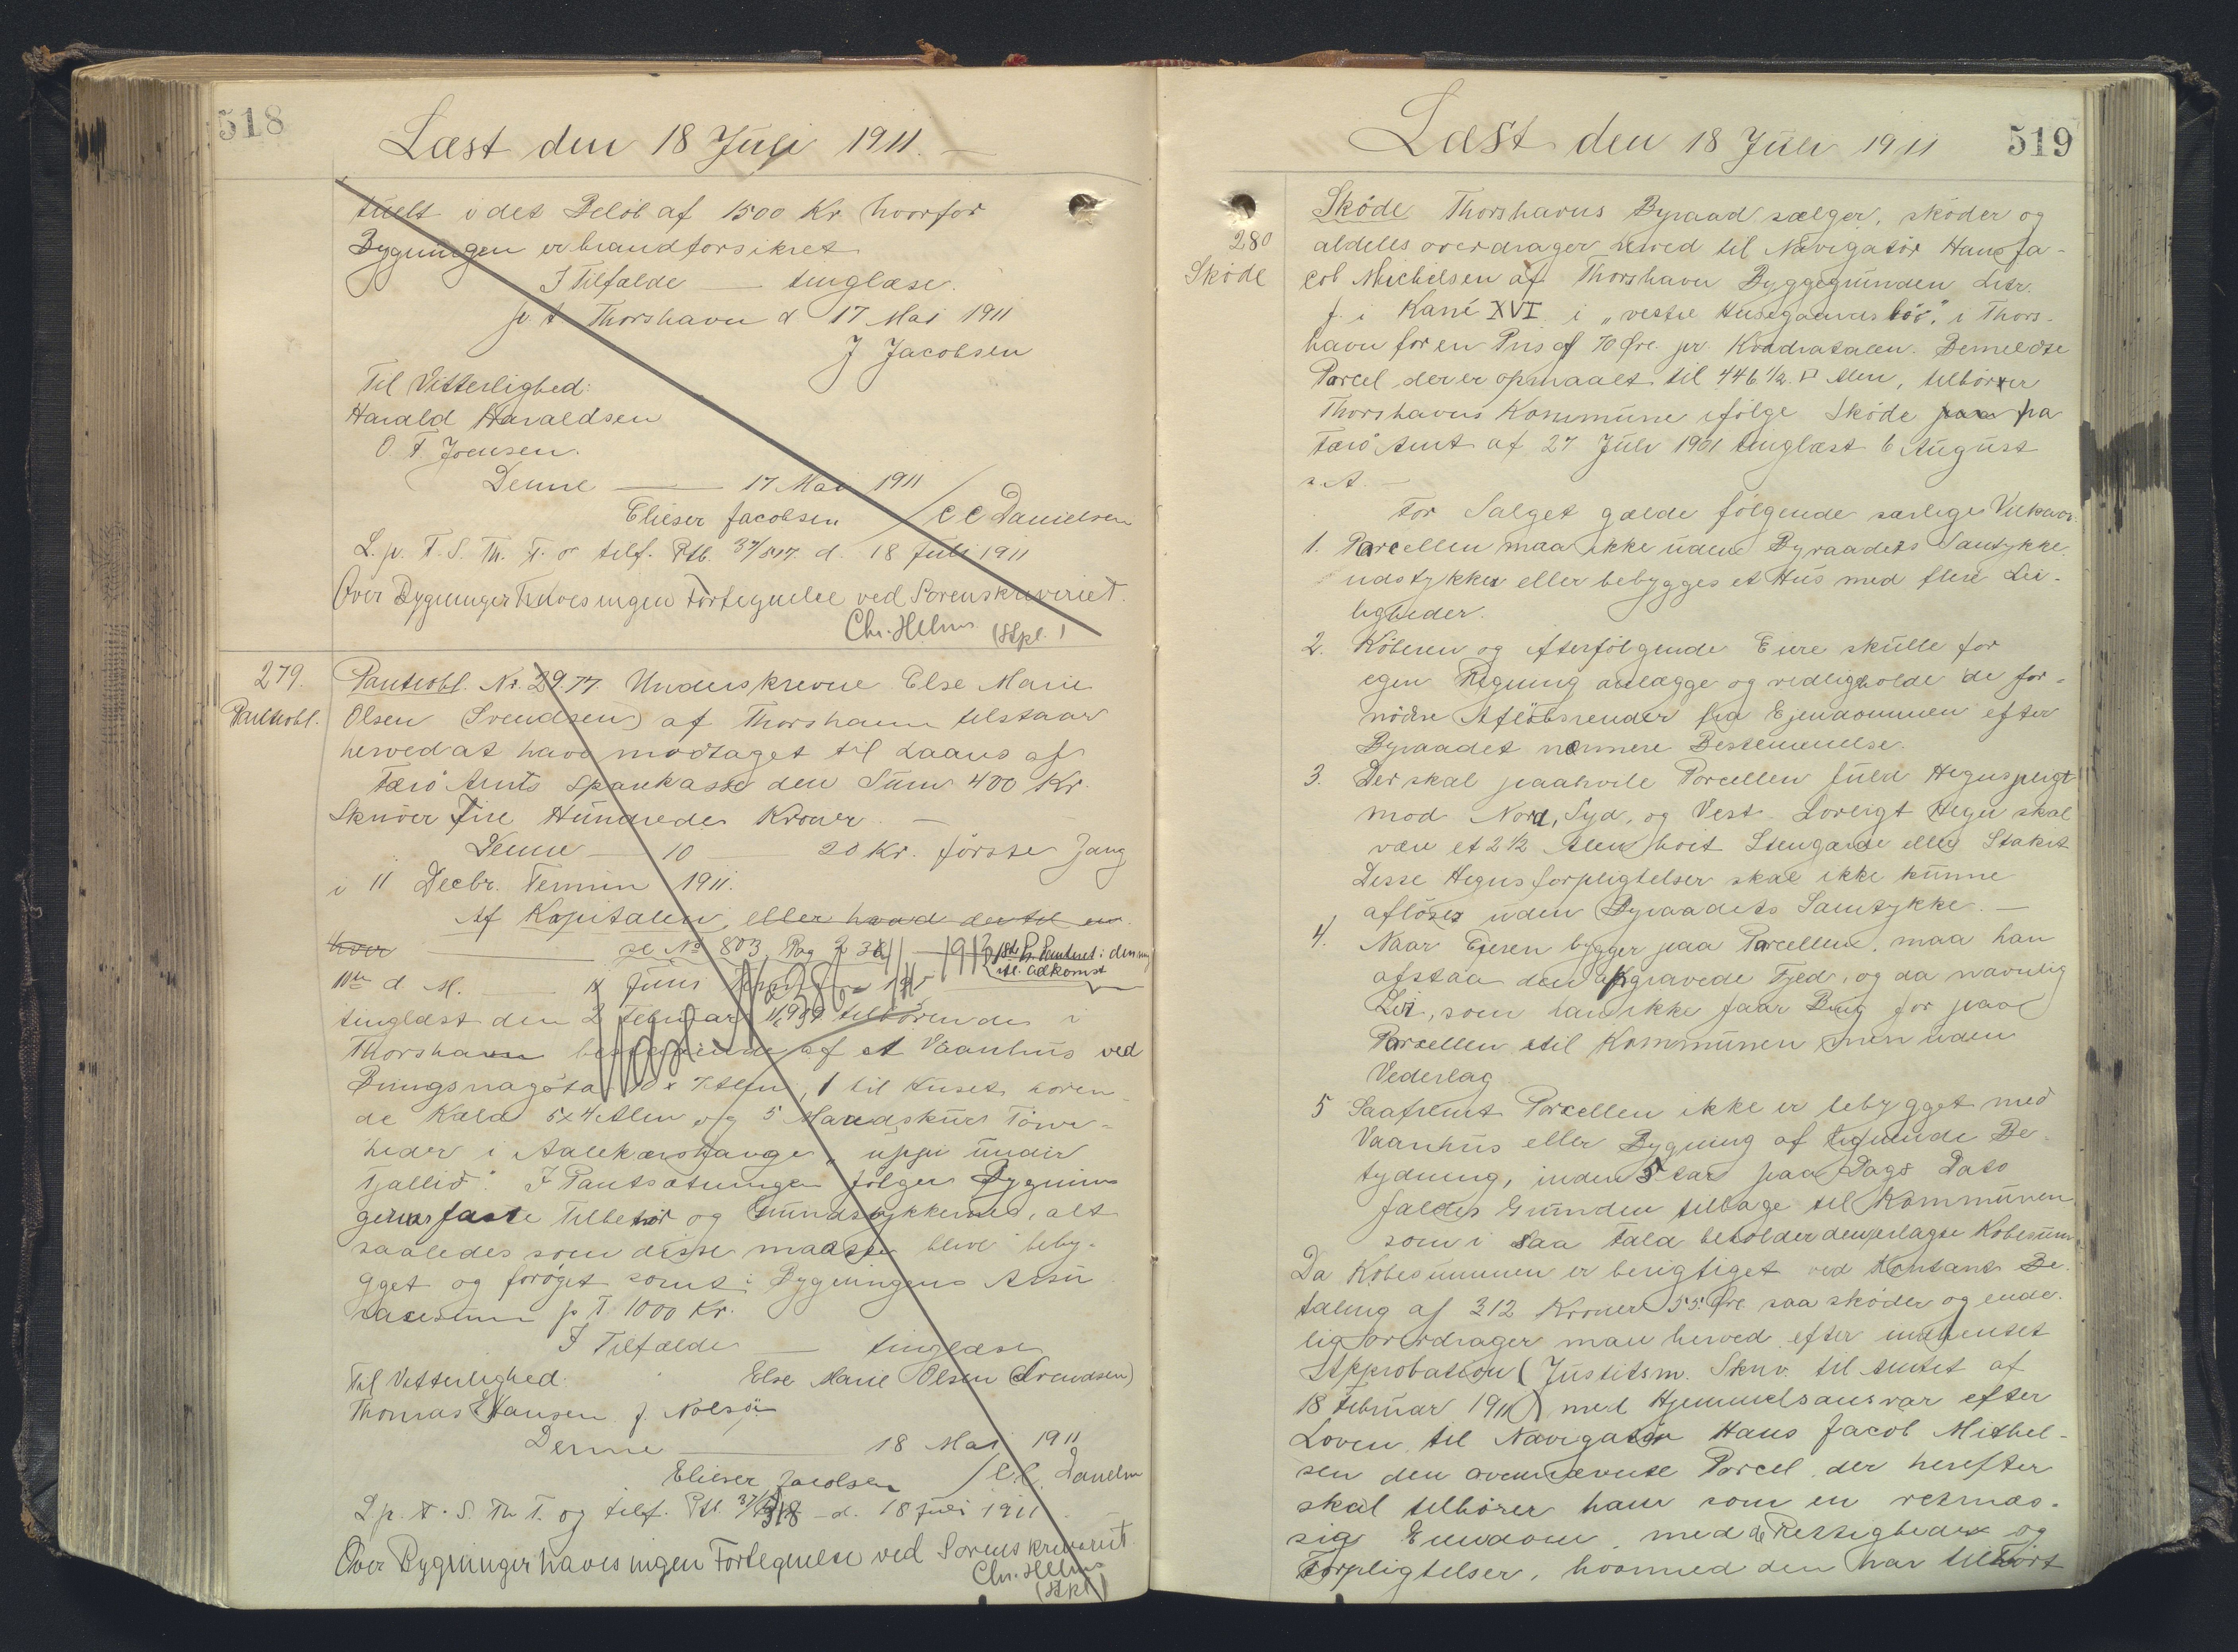 518
Læst den 18 Juli 1911. —
tuelt i det Beløb af 1500 Kr. hvorfor
Bygningen er brandforsikret
I Tilfælde — tinglæse.
p. t. Thorshavn d 17 Mai 1911
J Jacobsen
Til Vitterlighed:
Harald Haraldsen
O. F. Joensen.
Denne — 17 Mai 1911
Elieser Jacobsen / C C Danielsen
L. p. T. S. Th. T. o tilf. Ptb. 37/517. d. 18 Juli 1911
Over Bygninger haves ingen Fortegnelse ved Sorenskriveriet.
Chr. Helms (Stpl.)
279.
Panteobl.
Panteobl. Nr. 2977. Underskrevne Else Marie
Olsen (Svendsen) af Thorshavn tilstaar
herved at have modtaget til Laans af
Færø Amts Sparekasse den Sum 400 Kr.
Skriver Fire Hundrede Kroner. —
Denne — 10 — 20 Kr. første Gang
i 11 Decbr. Termin 1911.
Af Kapitalen, eller hvad der til en.
hver — No 803, Pag
11te d M. — Juni
tinglæst den 2 Februar tilhörende i
Thorshavn bestaaende af et Vaanhus ved
Bringsnagøta 10 x 7 Alen, 1 til Huset hören
de Kæld 5x4 Alen og 5 Maadskurs Törve-
heder i Aalekærshauge „uppi undir
Fjallið“. I Pantsætningen følger Bygnin
gernes faste Tilbehör og Grundstykkerne, alt
saaledes som disse maatte blive beby-
gget og forøget samt i Bygningens Assu
rancesum p. T. 1000 Kr.
I Tilfælde — tinglæse
Til Vitterlighed: Else Marie Olsen (Svendsen)
Thomas E Hansen J. Nolsøe
Denne — 18 Mai 1911
Elieser Jacobsen / C C. Danielsen
L p. T. S. Th T. og tilf. Ptb. 37/518 - d. 18 Juli 1911
Over Bygninger haves ingen Fortegnelse ved Sorenskriveriet.
Chr. Helms
(Stpl.)
519
Læst den 18 Juli 1911
280
Skøde
Skøde Thorshavns Byraad sælger, skøder og
aldeles overdrager herved til Navigatør Hans Ja-
cob Michelsen af Thorshavn Byggegrunden Litr.
f. i Karré XVI i „vestre Husegaards bø“, i Thors-
havn for en Pris af 70 Øre pr. Kvadratalen. Bemeldte
Parcel der er opmaalt til 446 1/2 □ Alen, tilhører
Thorshavns Kommune ifølge Skøde fra
Færø Amt af 27 Juli 1901 tinglæst 6 August
s. A. —
For Salget gælde følgende særlige Vilkaar.
1. Parcellen maa ikke uden Byraadets Samtykke
udstykkes eller bebygges et Hus med flere Lei-
ligheder.
2. Köberen og efterfølgende Eiere skulle for
egen Regning anlægge og vedligeholde de for-
nödne Aflöbsrender fra Ejendommen efter
Byraadet nærmere Bestemmelse.
3. Der skal paahvile Parcellen fuld Hegnspligt
mod Nord, Syd, og Vest. Lovligt Hegn skal
være et 2 1/2 Alen høit Stengærde eller Stakit
Disse Hegnsforpligtelser skal ikke kunne
aflöses uden Byraadets Samtykke. —
4. Naar Eieren bygger paa Parcellen, maa han
afstaa den afgravede Fyld, og da navnlig
Ler, som han ikke faar Brug for paa
Parcellen til Kommunen men uden
Vederlag
5 Saafremt Parcellen ikke er bebygget med
Vaanhus eller Bygning af lignende Be-
tydning, inden 5 Aar paa Dags Dato
falder Grunden tilbage til Kommunen
som i saa Fald beholder den erlagte Købesum
Da Købesummen er berigtiget ved Kontant Be-
taling af 312 Kroner 55 Øre saa skøder og ende-
lig overdrager man herved efter indhentet
Approbation (Justitsm. Skriv. til Amtet af
18 Februar 1911) med Hjemmelsansvar efter
Loven til Navigatør Hans Jacob Michel-
sen den ovennævnte Parcel, der herefter
skal tilhører ham som en retmæs-
sig Eiendom, med de Rettigheder og
Forpligtelser, hvormed den har tilhört